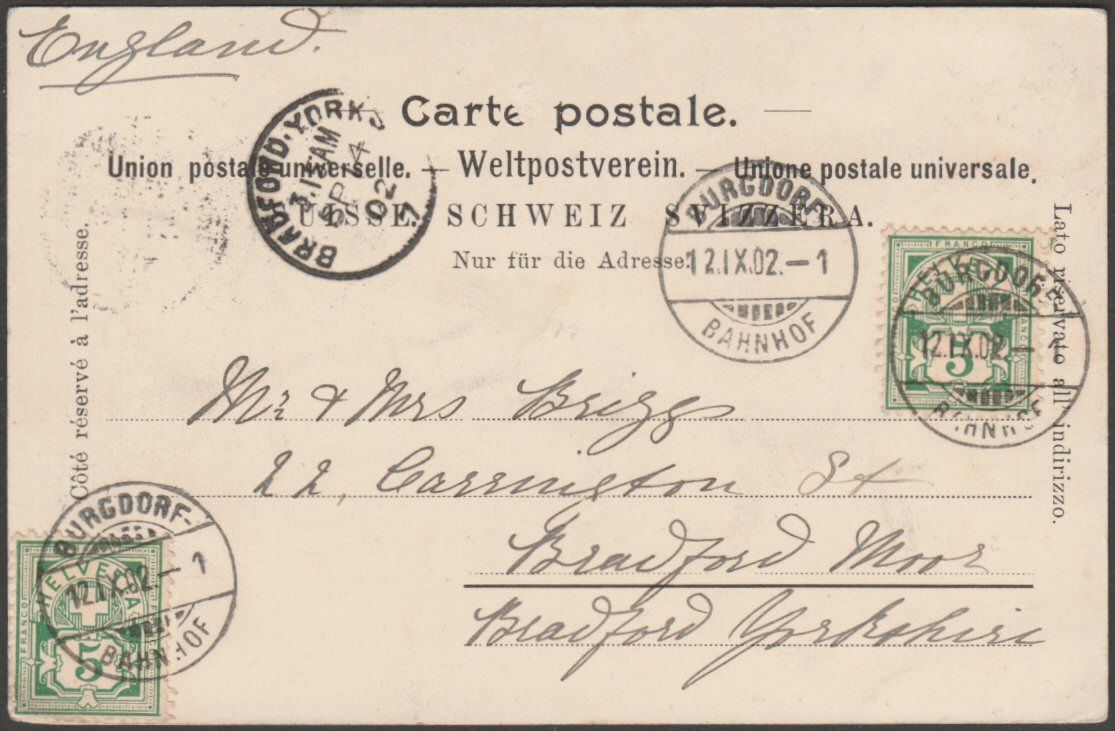 England.
Carte postale.
Union postale universelle. — Weltpostverein. — Unione postale universale.
SUISSE. SCHWEIZ SVIZZERA.
Nur für die Adresse.
Côté réservé à l'adresse.
Lato riservato all' indirizzo.
BRADFORD. YORKS
AM
SP 14
02
BURGDORF
12.IX.02.–1
BAHNHOF
FRANCO
HELVETIA
5
BURGDORF
12.IX.02.–1
BAHNHOF
Mr & Mrs Briggs
22, Carrington St
Bradford Moor
Bradford Yorkshire
BURGDORF
12.IX.02.–1
BAHNHOF
FRANCO
HELVETIA
5